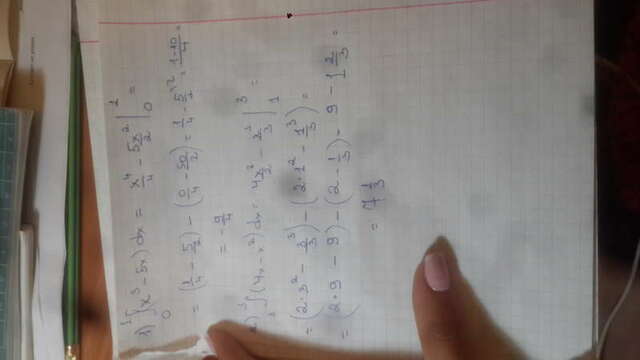 1) ₀∫¹(x³ - 5x)dx = x⁴/4 - 5x²/2 |₀¹ =
= (1/4 - 5/2) - (0/4 - 50/2) = 1/4 - 5/2 \² = 1-10/4 =
= - 9/4
∫(4x - x²)dx = 4x²/2 - x³/3 |₁³ =
= (2·3² - 3³/3) - (2·1² - 1³/3) =
= (2·9 - 9) - (2 - 1/3) = 9 - 1 2/3 =
= 7 1/3